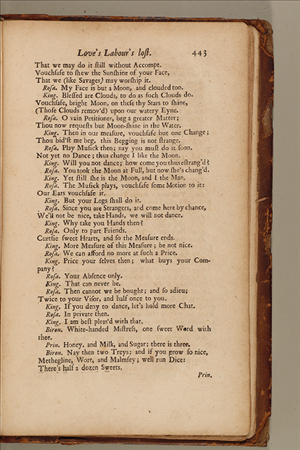 Love's Labour's lost. 443
That we may do it still without Accompt.
Vouchsafe to shew the Sunshine of your Face,
That we (like Savages) may worship it.
Rosa. My Face is but a Moon, and clouded too.
King. Blessed are Clouds, to do as such Clouds do.
Vouchsafe, bright Moon, on these thy Stars to shine,
(Those Clouds remov'd) upon our watery Eyne.
Rosa. O vain Petitioner, beg a greater Matter;
Thou now requests but Moon-shine in the Water.
King. Then in our measure, vouchsafe but one Change;
Thou bid'st me beg, this Begging is not strange.
Rosa. Play Musick then; nay you must do it soon.
Not yet no Dance; thus change I like the Moon.
King. Will you not dance; how come you thus estrang'd?
Rosa. You took the Moon at Full, but now she's chang'd.
King. Yet still she is the Moon, and I the Man.
Rosa. The Musick plays, vouchsafe some Motion to it:
Our Ears vouchsafe it.
King. But your Legs should do it.
Rosa. Since you are Strangers, and come here by chance,
We'll not be nice, take Hands, we will not dance.
King. Why take you Hands then?
Rosa. Only to part Friends.
Curtsie sweet Hearts, and so the Measure ends.
King. More Measure of this Measure; be not nice.
Rosa. We can afford no more at such a Price.
King. Price your selves then; what buys your Com-
pany?
Rosa. Your Absence only.
King. That can never be.
Rosa. Then cannot we be bought; and so adieu;
Twice to your Visor, and half once to you.
King. If you deny to dance, let's hold more Chat.
Rosa. In private then.
King. I am best pleas'd with that.
Biron. White-handed Mistress, one sweet Word with
thee.
Prin. Honey, and Milk, and Sugar; there is three.
Biron. Nay then two Treys; and if you grow so nice,
Metheglin, Wort, and Malmsey; well run Dice:
There's half a dozen Sweets.
Prin.